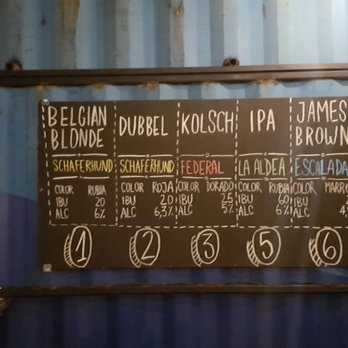 BELGIAN
BLONDE
SCHAFERHUND
COLOR RUBIA
IBU 20
ALC 6%
1
DUBBEL
SCHAFERHUND
COLOR ROJA
IBU 20
ALC 6,3%
2
KOLSCH
FEDERAL
COLOR DORADO
IBU 25
ALC 5%
3
IPA
LA ALDEA
COLOR RUBIA
IBU 60
ALC 6%
5
JAMES
BROWN
ESCALADA
COLOR
IBU
ALC
6